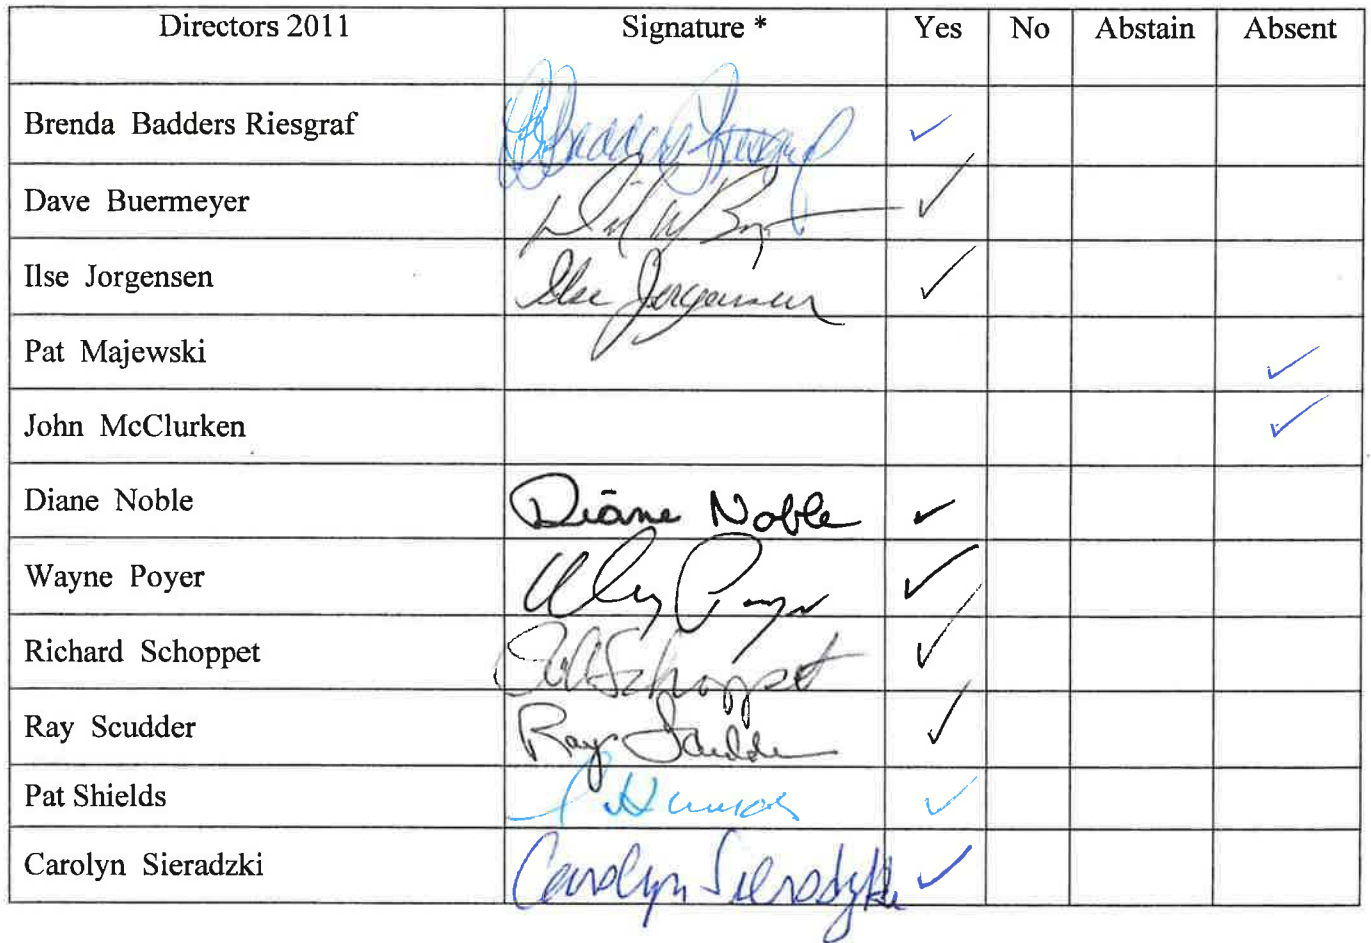 Directors 2011 Signature * Yes No Abstain Absent
Brenda Badders Riesgraf ✓
Dave Buermeyer ✓
Ilse Jorgensen Ilse Jorgensen ✓
Pat Majewski ✓
John McClurken ✓
Diane Noble Diane Noble ✓
Wayne Poyer ✓
Richard Schoppet Schoppet ✓
Ray Scudder Ray Scudder ✓
Pat Shields ✓
Carolyn Sieradzki Carolyn Sieradzki ✓